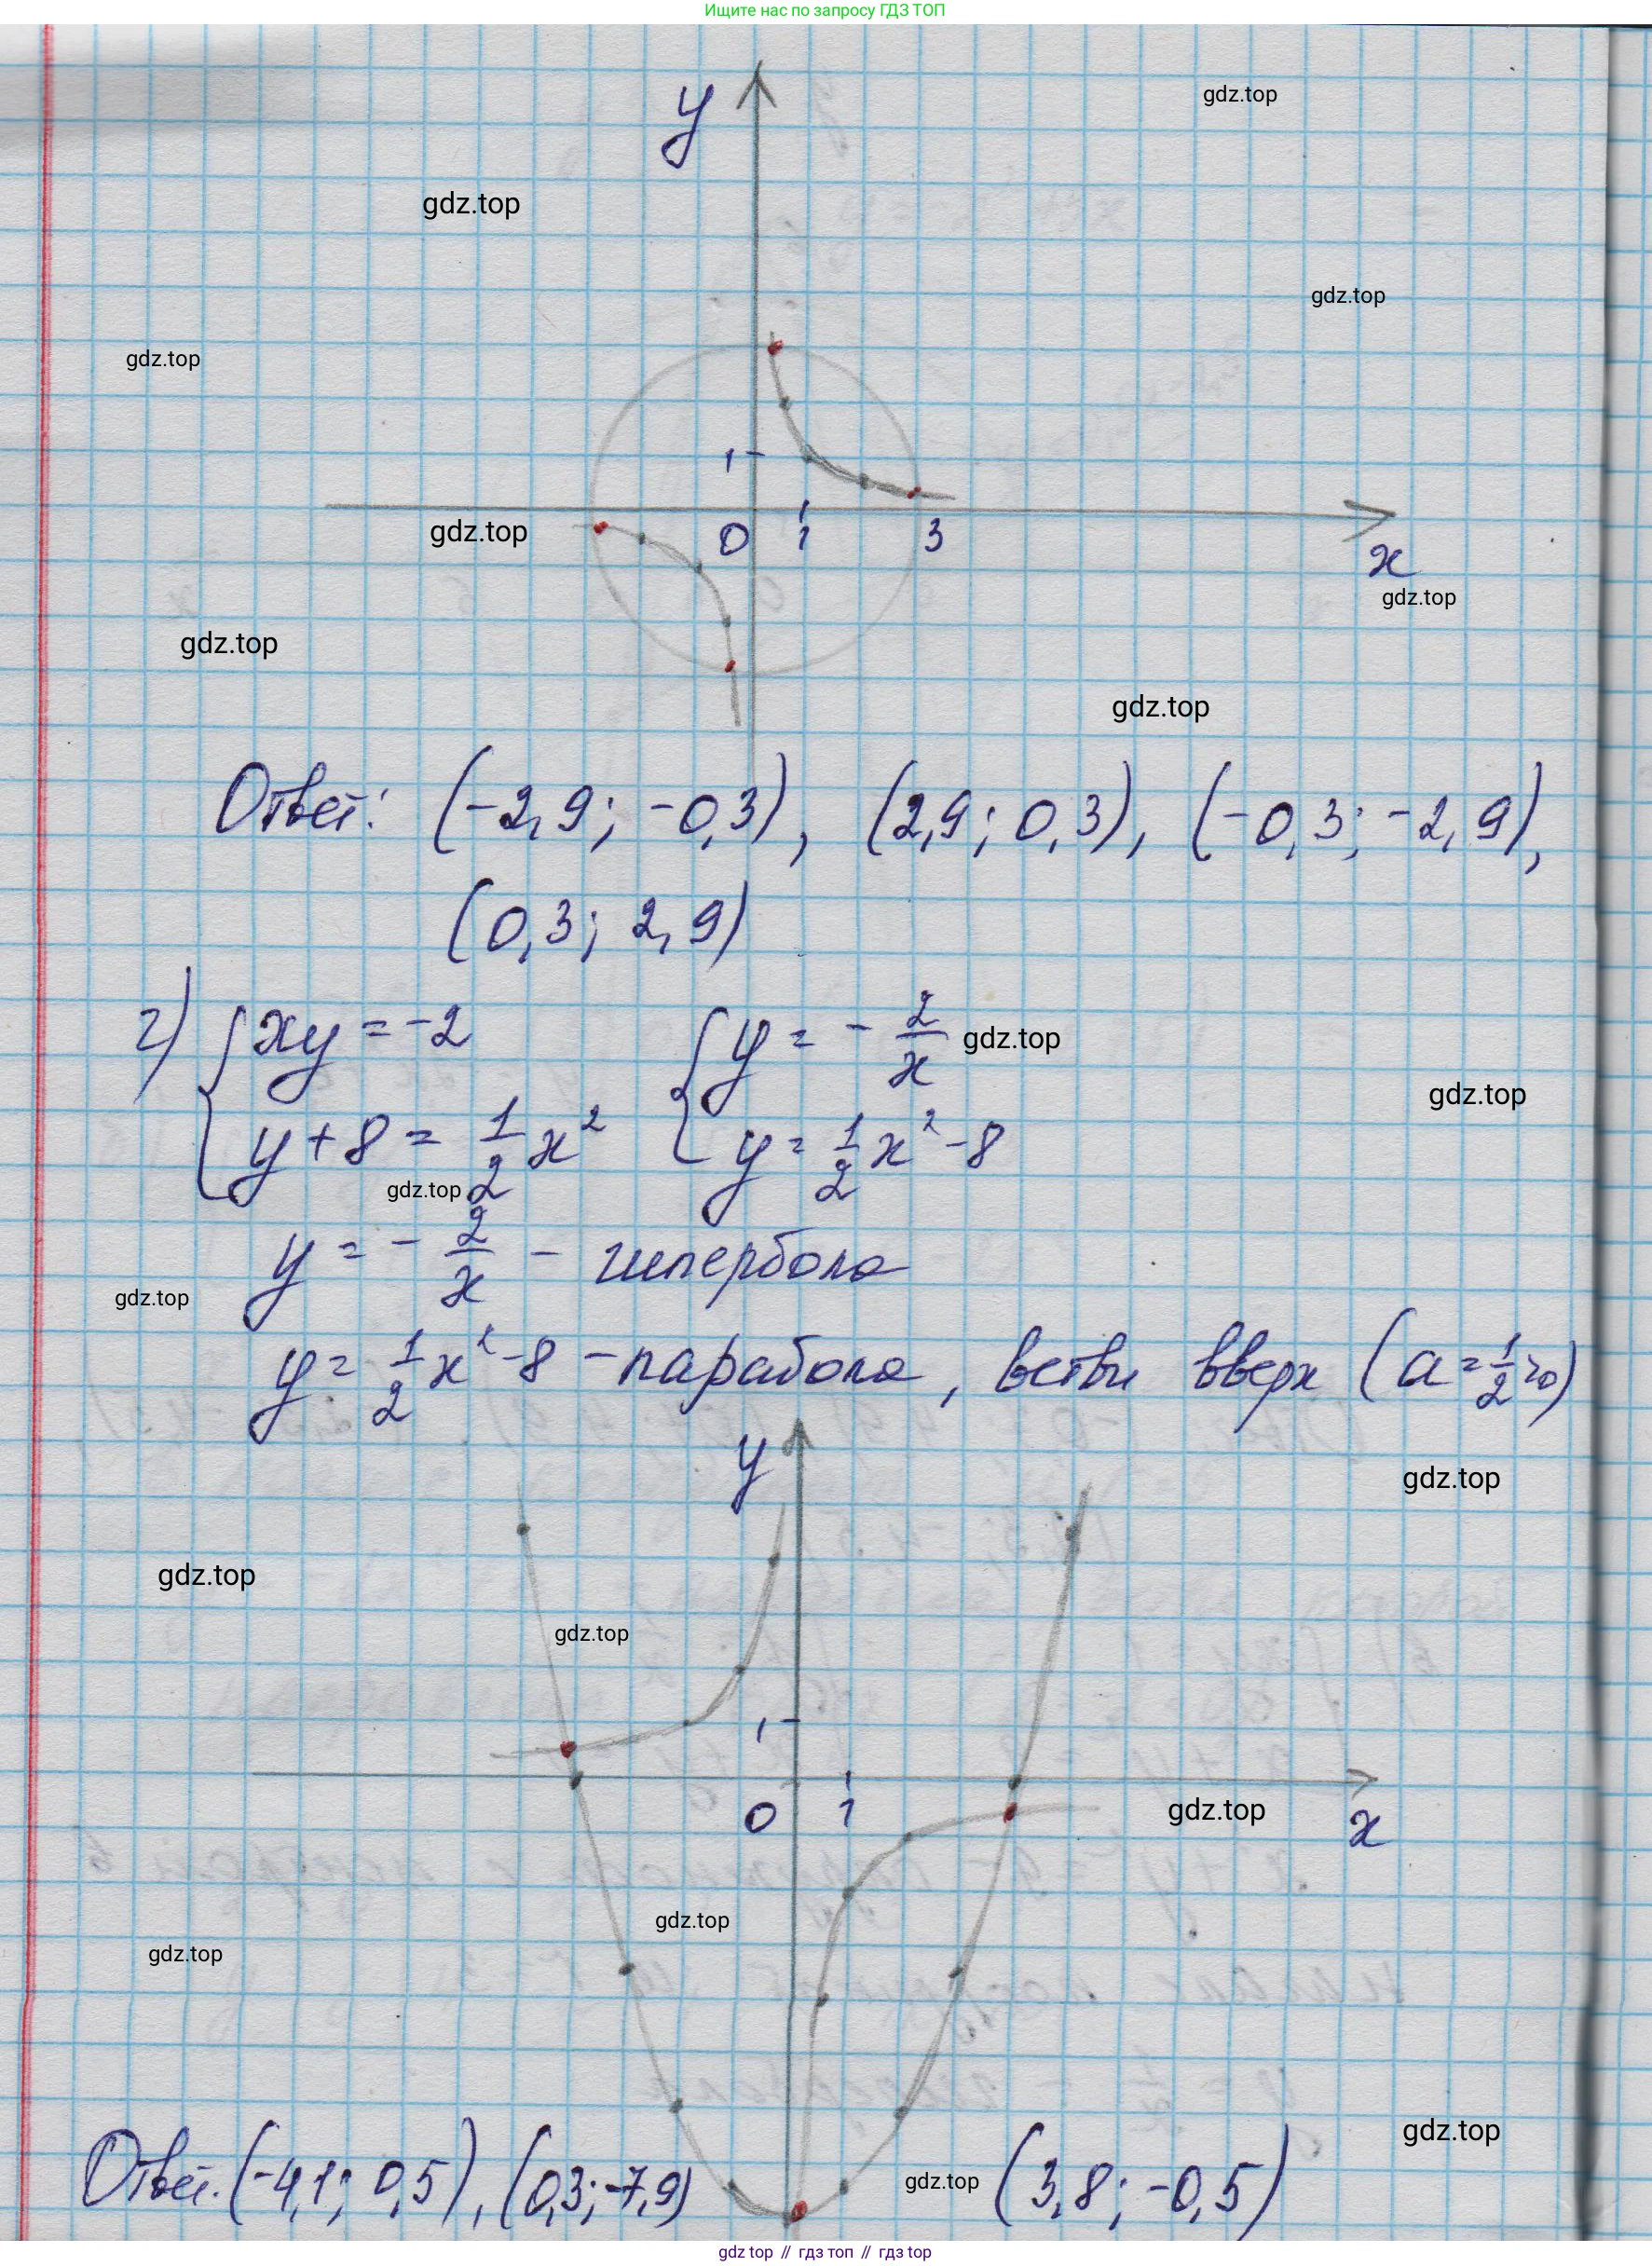 Ищите нас по запросу ГДЗ ТОП
gdz.top
y
gdz.top
gdz.top
gdz.top
1
gdz.top
0 1 3
x
gdz.top
gdz.top
gdz.top
Ответ: (-2,9; -0,3), (2,9; 0,3), (-0,3; -2,9),
(0,3; 2,9)
г) { xy = -2 { y = - 2/x
gdz.top
gdz.top
y + 8 = 1/2 x² y = 1/2 x² - 8
gdz.top
y = - 2/x - гипербола
gdz.top
y = 1/2 x² - 8 - парабола, ветви вверх (a = 1/2 > 0)
y
gdz.top
gdz.top
gdz.top
1
0 1
gdz.top
x
gdz.top
gdz.top
gdz.top
Ответ. (-4,1; 0,5), (0,3; -7,9) (3,8; -0,5)
gdz.top
gdz top // гдз топ // гдз top